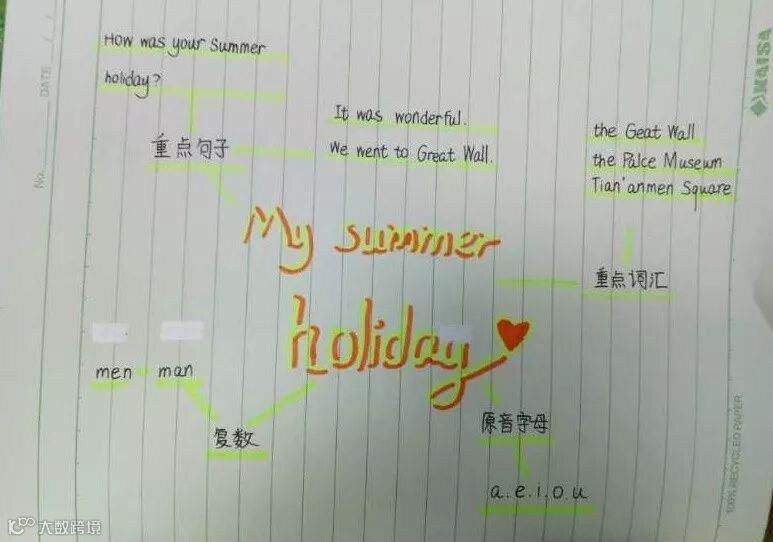 How was your Summer
holiday?
重点句子
It was wonderful.
We went to Great Wall.
the Geat Wall
the Palce Museum
Tian'anmen Square
重点词汇
My summer
holiday
men man
复数
原音字母
a.e.i.o.u
No.
DATE / /
KAISA
100% RECYCLED PAPER
大数跨境